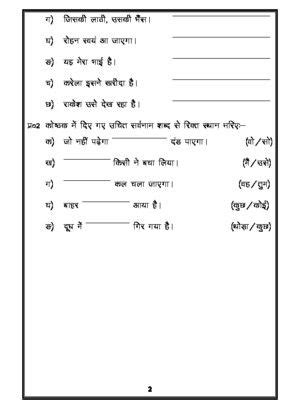 ग) जिसकी लाठी, उसकी भैंस।
घ) रोहन स्वयं आ जाएगा।
ङ) यह मेरा भाई है।
च) करेला इसने खरीदा है।
छ) राकेश उसे देख रहा है।
प्र०2 कोष्ठक में दिए गए उचित सर्वनाम शब्द से रिक्त स्थान भरिए:-
क) जो नहीं पढ़ेगा __________ दंड पाएगा। (वो/सो)
ख) __________ किसी ने बचा लिया। (मैं/उसे)
ग) __________ कल चला जाएगा। (वह/तुम)
घ) बाहर __________ आया है। (कुछ/कोई)
ङ) दूध में __________ गिर गया है। (थोड़ा/कुछ)
2